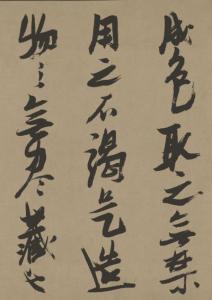 成色取之無禁
用之不竭是造
物之無盡藏也